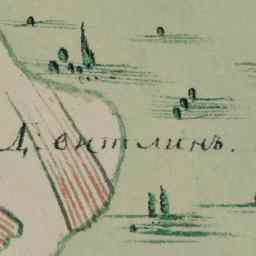 Д. витлинъ.